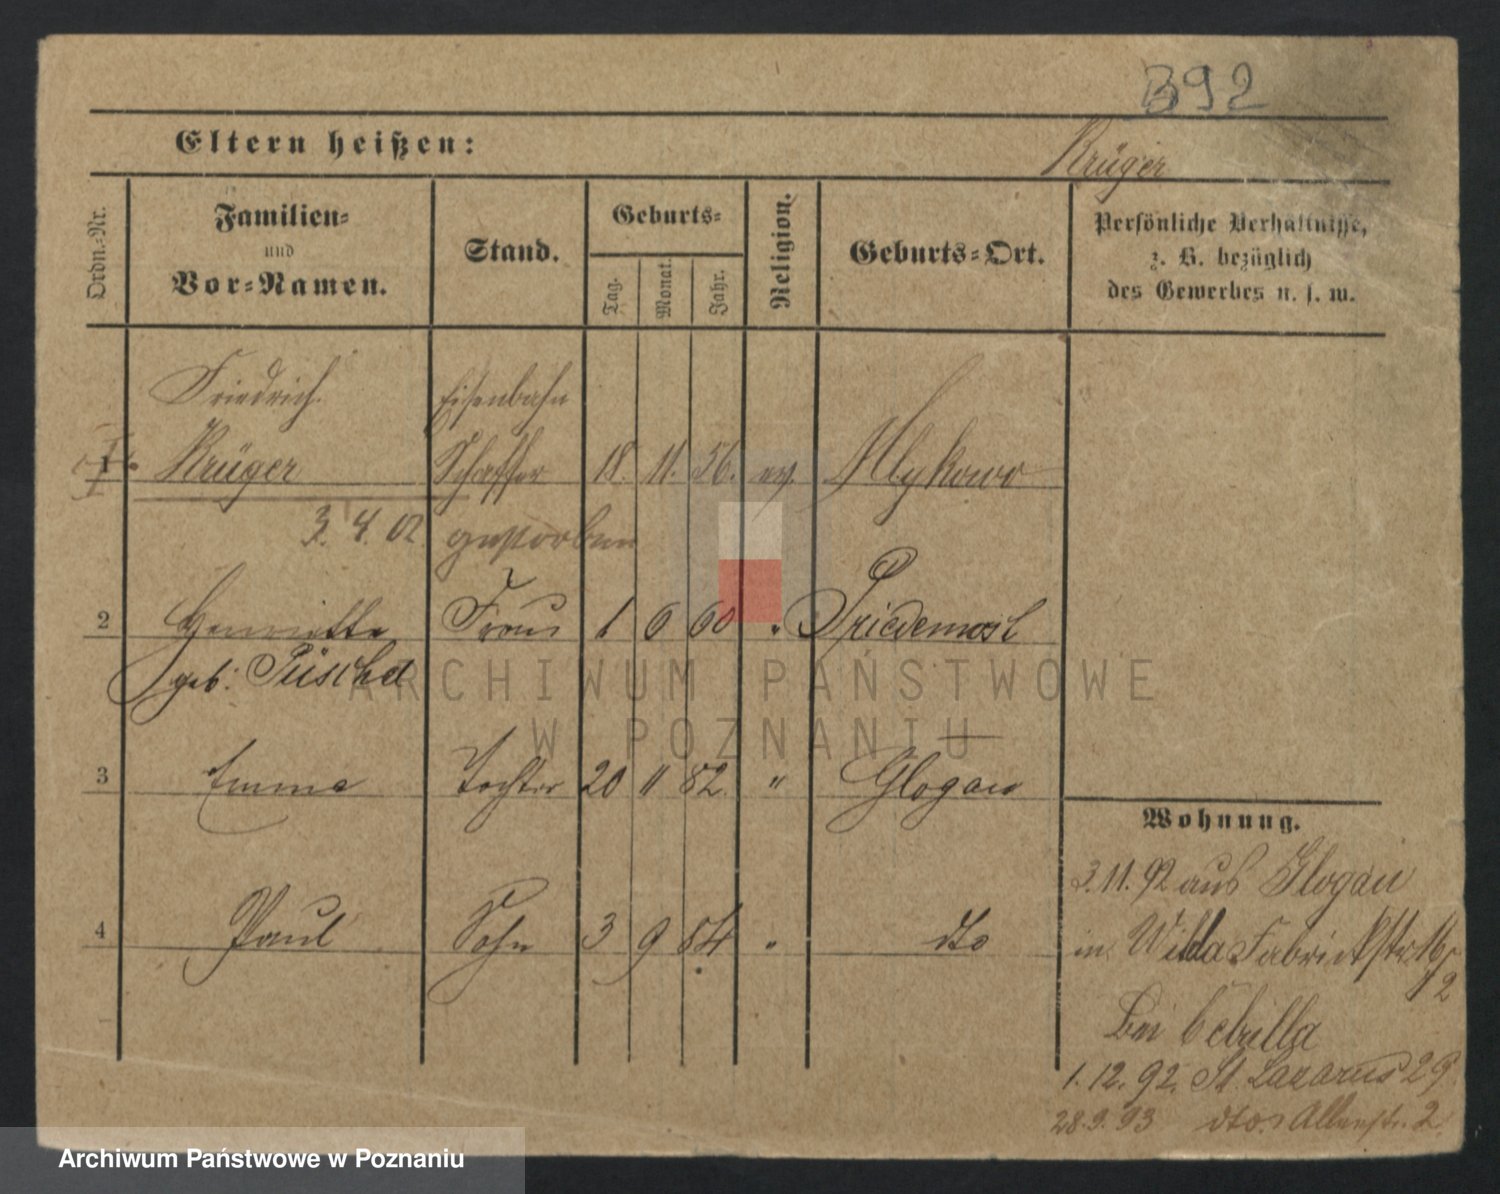 392
Eltern heißen:
Krüger
Ordn.-Nr.
Familien-
und
Vor-Namen.
Stand.
Geburts-
Tag.
Monat.
Jahr.
Religion.
Geburts-Ort.
Persönliche Verhältnisse,
z. B. bezüglich
des Gewerbes u. s. w.
Friedrich Eisenbahn
1 Krüger Schaffner 18. 11. 56. ev. Mlykowo
3. 4. 02 gestorben
2 Henriette Frau 1 6 60 " Priedemost
geb. Püschel
3 Emma Tochter 20 11 82. " Glogau
4 Paul Sohn 3 9 84 " dto
Wohnung.
3.11.92 aus Glogau
in Wilda Fabrickstr. 16/2
bei Cebulla
1.12.92. St. Lazarus 29
28.9.93 dto. 2.
ARCHIWUM PAŃSTWOWE
W POZNANIU
Archiwum Państwowe w Poznaniu